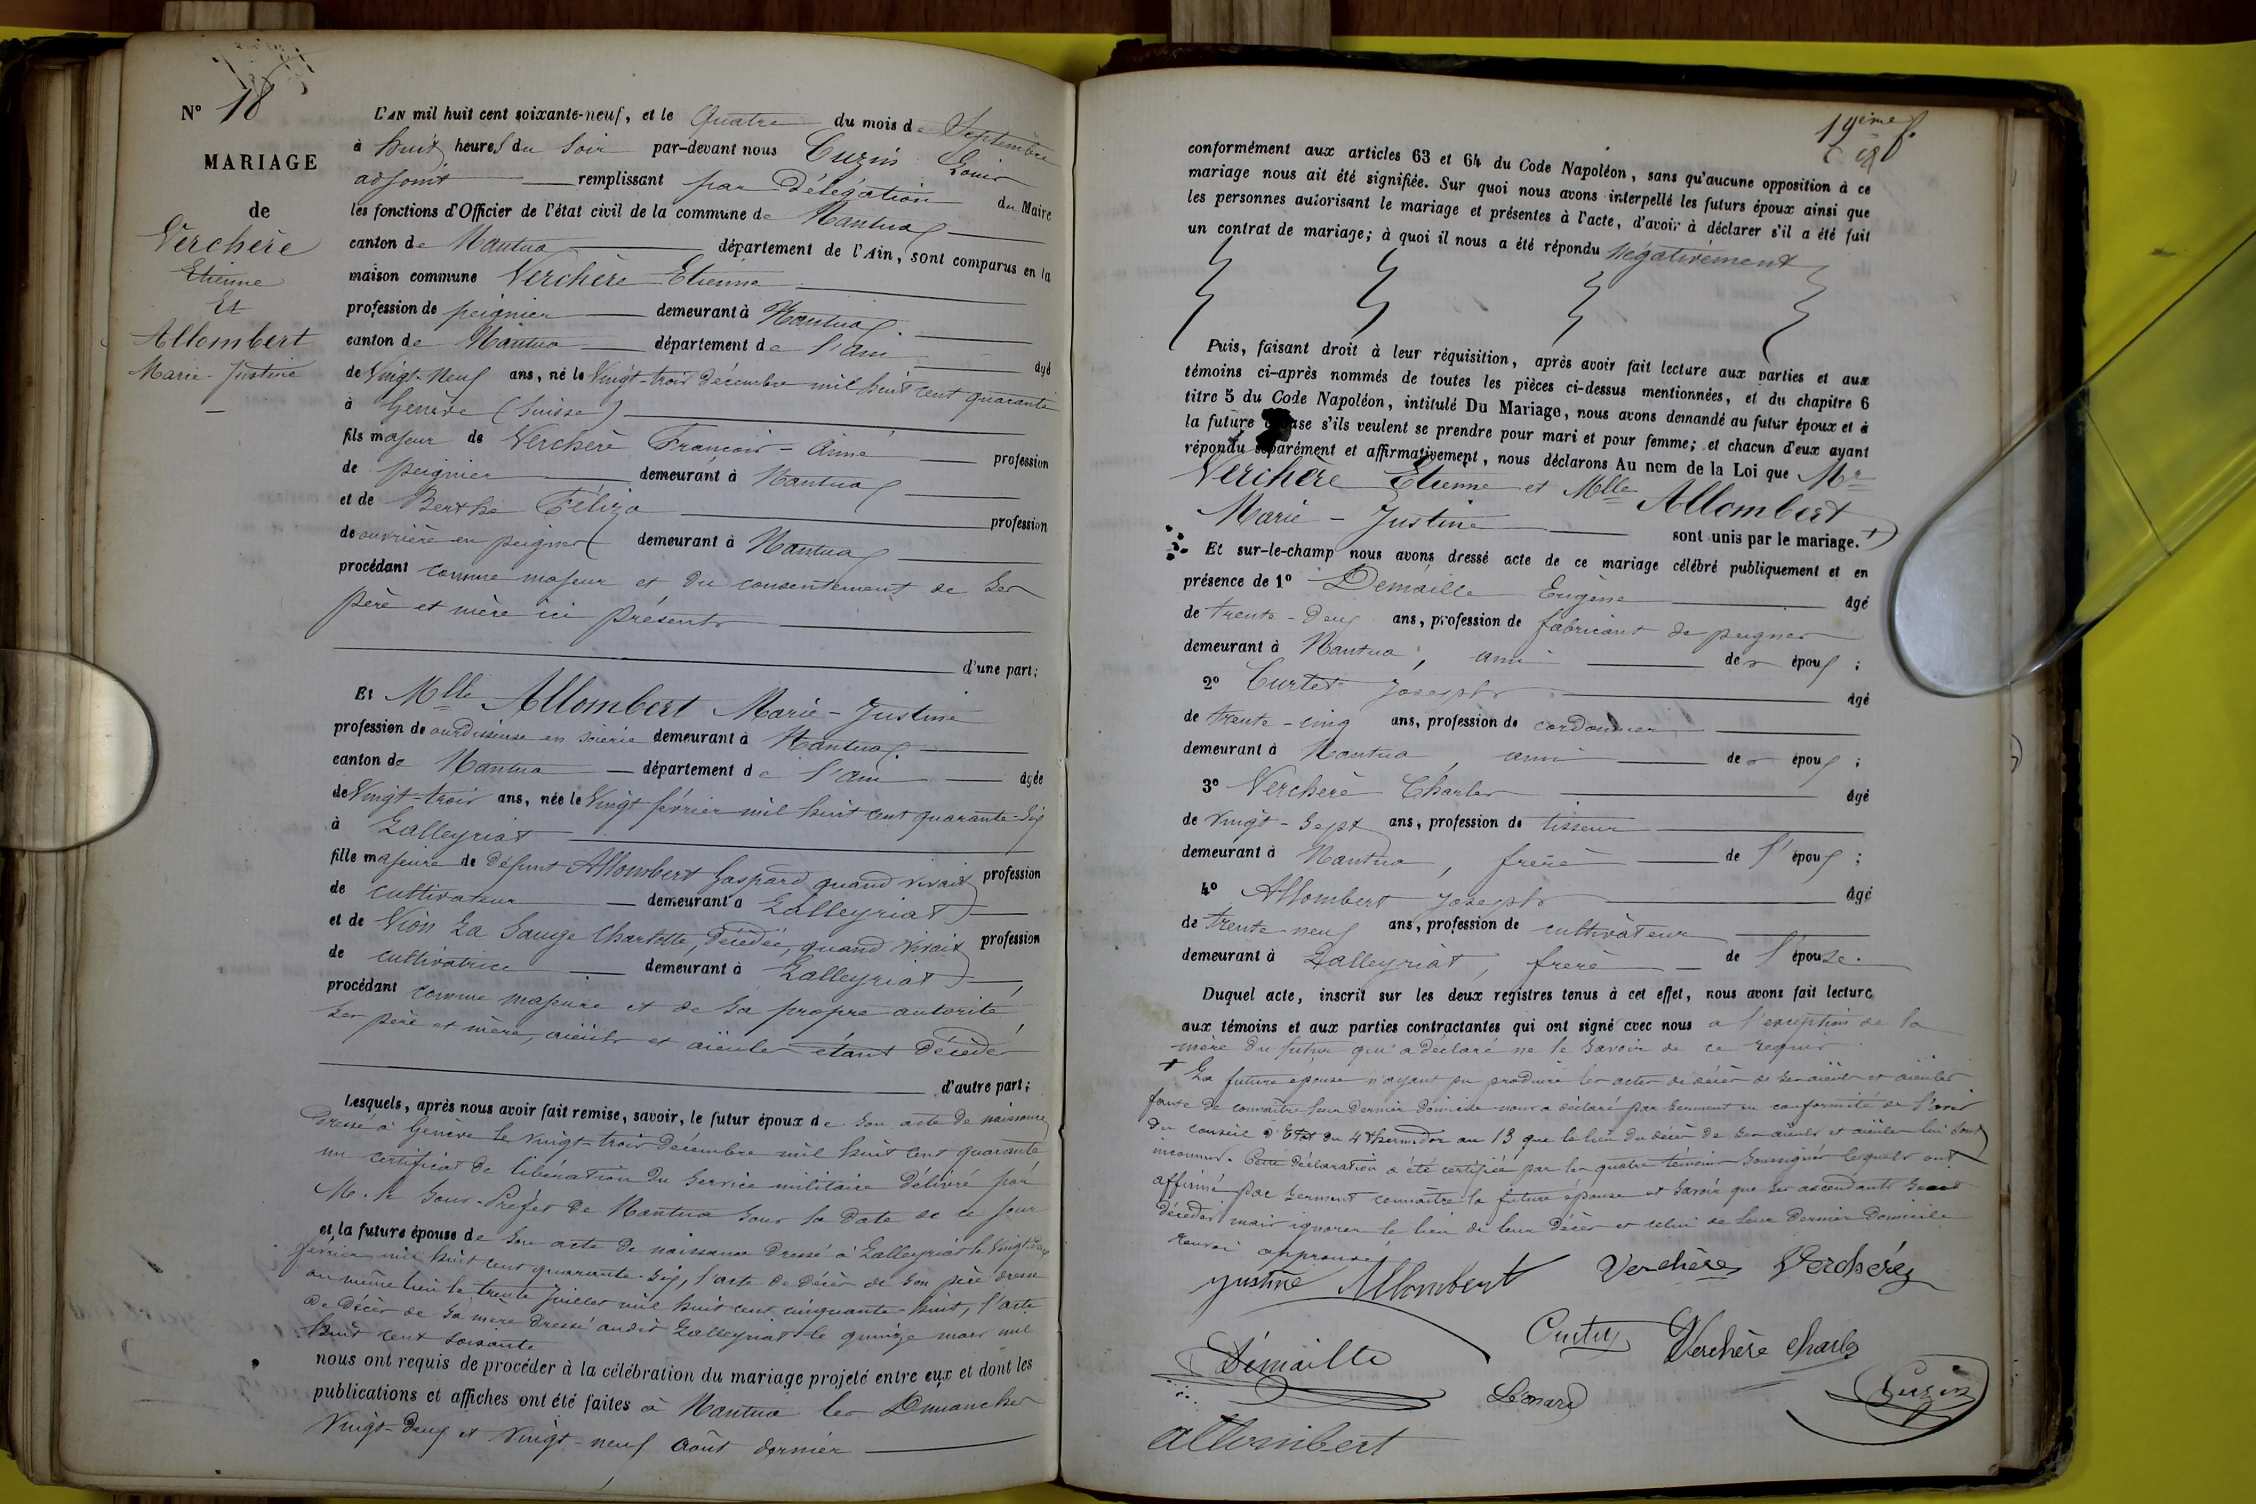 N° 18
MARIAGE
de
Verchère
Etienne
Et
Allombert
Marie-Justine
L'AN mil huit cent soixante-neuf, et le Quatre du mois de Septembre
à huit heures du soir par-devant nous Cuzin Louis
adjoint remplissant par Délégation du Maire
les fonctions d'Officier de l'état civil de la commune de Nantua
canton de Nantua département de l'Ain, sont comparus en la
maison commune Verchère Etienne
profession de peignier demeurant à Nantua
canton de Nantua département de l'Ain âgé
de Vingt-Neuf ans, né le Vingt-trois décembre mil huit cent quarante
à Genève (Suisse)
fils majeur de Verchère François-Aimé profession
de peignier demeurant à Nantua
et de Berthe Féliza profession
de ouvrière en peignes demeurant à Nantua
procédant comme majeur et du consentement de ses
père et mère ici présents
d'une part;
Et Mlle Allombert Marie-Justine
profession de ourdisseuse en soierie demeurant à Nantua
canton de Nantua département de l'Ain âgée
de Vingt-trois ans, née le Vingt février mil huit cent quarante-six
à Lalleyriat
fille majeure de défunt Allombert Gaspard quand vivait profession
de cultivateur demeurant à Lalleyriat
et de Vion La Sauge Charlotte, décédée, quand vivait profession
de cultivatrice demeurant à Lalleyriat,
procédant comme majeure et de sa propre autorité,
ses père et mère, aïeuls et aïeules étant décédés
d'autre part;
Lesquels, après nous avoir fait remise, savoir, le futur époux de son acte de naissance
dressé à Genève le vingt-trois décembre mil huit cent quarante
un certificat de libération du service militaire délivré par
M. le Sous-Préfet de Nantua sous la date de ce jour
et la future épouse de son acte de naissance dressé à Lalleyriat le vingt-
février mil huit cent quarante-six, l'acte de décès de son père dressé
au même lieu le trente juillet mil huit cent cinquante-huit, l'acte
de décès de sa mère dressé audit Lalleyriat le quinze mars mil
huit cent soixante
nous ont requis de procéder à la célébration du mariage projeté entre eux et dont les
publications et affiches ont été faites à Nantua les Dimanches
Vingt-Deux et Vingt-neuf Août dernier
19ème f.
conformément aux articles 63 et 64 du Code Napoléon, sans qu'aucune opposition à ce
mariage nous ait été signifiée. Sur quoi nous avons interpellé les futurs époux ainsi que
les personnes autorisant le mariage et présentes à l'acte, d'avoir à déclarer s'il a été fait
un contrat de mariage; à quoi il nous a été répondu Négativement
Puis, faisant droit à leur réquisition, après avoir fait lecture aux parties et aux
témoins ci-après nommés de toutes les pièces ci-dessus mentionnées, et du chapitre 6
titre 5 du Code Napoléon, intitulé Du Mariage, nous avons demandé au futur époux et à
la future épouse s'ils veulent se prendre pour mari et pour femme; et chacun d'eux ayant
répondu séparément et affirmativement, nous déclarons Au nom de la Loi que Mr
Verchère Etienne et Mlle Allombert
Marie-Justine sont unis par le mariage. +
Et sur-le-champ nous avons dressé acte de ce mariage célébré publiquement et en
présence de 1° Demaille Eugène âgé
de trente-deux ans, profession de fabricant de peignes
demeurant à Nantua, ami des époux;
2° Curtet Joseph âgé
de trente-cinq ans, profession de cordonnier
demeurant à Nantua, ami des époux;
3° Verchère Charles âgé
de Vingt-Sept ans, profession de tisseur
demeurant à Nantua, frère de l'époux;
4° Allombert Joseph âgé
de trente-neuf ans, profession de cultivateur
demeurant à Lalleyriat, frère de l'épouse.
Duquel acte, inscrit sur les deux registres tenus à cet effet, nous avons fait lecture
aux témoins et aux parties contractantes qui ont signé avec nous a l'exception de la
mère du futur qui a déclaré ne le savoir de ce requis
+ La future épouse n'ayant pu produire les actes de décès de ses aïeuls et aïeules
faute de connaître leur dernier domicile nous a déclaré par serment en conformité de l'avis
du conseil d'Etat du 4 thermidor an 13 que le lieu du décès de ses aïeuls et aïeules lui sont
inconnus. Cette déclaration a été certifiée par les quatre témoins soussignés lesquels ont
affirmé par serment connaître la future épouse et savoir que ses ascendants sont
décédés mais ignorer le lieu de leur décès et celui de leur dernier domicile
renvoi approuvé
Justine Allombert Verchère Verchère
Démaille Curtet Verchère Charles
Léonard Cuzin
allombert